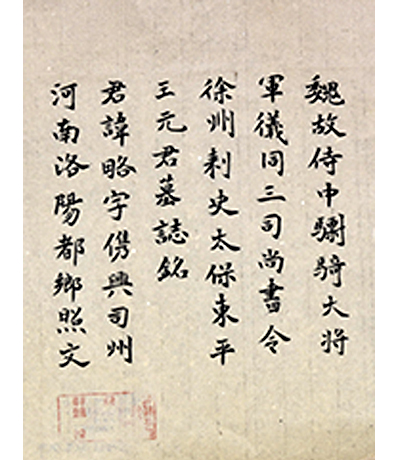 魏故侍中驃騎大将
軍儀同三司尚書令
徐州刺史太保東平
王元君墓誌銘
君諱略字儁興司州
河南洛陽都鄉照文